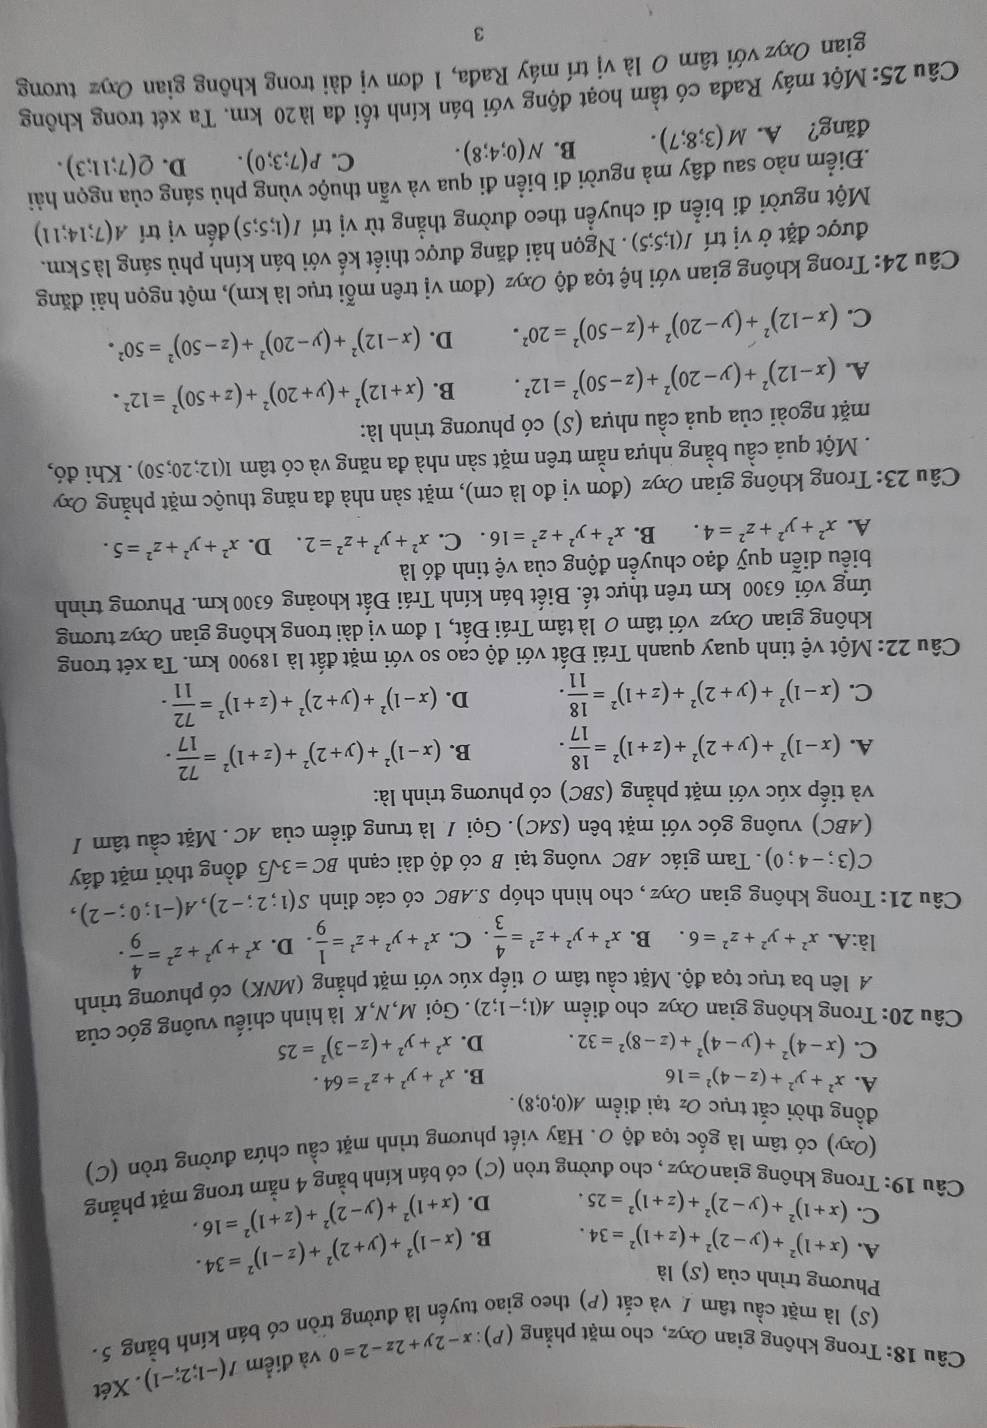 Câu 18: Trong không gian Oxyz, cho mặt phẳng (P): x−2y+2z−2=0 và điểm I(−1;2;−1). Xét
(S) là mặt cầu tâm I và cắt (P) theo giao tuyến là đường tròn có bán kính bằng 5.
Phương trình của (S) là
A. (x+1)²+(y−2)²+(z+1)²=34. B. (x−1)²+(y+2)²+(z−1)²=34.
C. (x+1)²+(y−2)²+(z+1)²=25. D. (x+1)²+(y−2)²+(z+1)²=16.
Câu 19: Trong không gian Oxyz, cho đường tròn (C) có bán kính bằng 4 nằm trong mặt phẳng
(Oxy) có tâm là gốc tọa độ O. Hãy viết phương trình mặt cầu chứa đường tròn (C)
đồng thời cắt trục Oz tại điểm A(0;0;8).
A. x²+y²+(z−4)²=16 B. x²+y²+z²=64.
C. (x−4)²+(y−4)²+(z−8)²=32. D. x²+y²+(z−3)²=25
Câu 20: Trong không gian Oxyz cho điểm A(1;−1;2). Gọi M,N,K là hình chiếu vuông góc của
A lên ba trục tọa độ. Mặt cầu tâm O tiếp xúc với mặt phẳng (MNK) có phương trình
là:A. x²+y²+z²=6. B. x²+y²+z²=4/3. C. x²+y²+z²=1/9. D. x²+y²+z²=4/9.
Câu 21: Trong không gian Oxyz, cho hình chóp S.ABC có các đỉnh S(1;2;−2), A(−1;0;−2),
C(3;−4;0). Tam giác ABC vuông tại B có độ dài cạnh BC=3√3 đồng thời mặt đáy
(ABC) vuông góc với mặt bên (SAC). Gọi I là trung điểm của AC. Mặt cầu tâm I
và tiếp xúc với mặt phẳng (SBC) có phương trình là:
A. (x−1)²+(y+2)²+(z+1)²=18/17. B. (x−1)²+(y+2)²+(z+1)²=72/17.
C. (x−1)²+(y+2)²+(z+1)²=18/11. D. (x−1)²+(y+2)²+(z+1)²=72/11.
Câu 22: Một vệ tinh quay quanh Trái Đất với độ cao so với mặt đất là 18900 km. Ta xét trong
không gian Oxyz với tâm O là tâm Trái Đất, 1 đơn vị dài trong không gian Oxyz tương
ứng với 6300 km trên thực tế. Biết bán kính Trái Đất khoảng 6300km. Phương trình
biểu diễn quỹ đạo chuyển động của vệ tinh đó là
A. x²+y²+z²=4. B. x²+y²+z²=16. C. x²+y²+z²=2. D. x²+y²+z²=5.
Câu 23: Trong không gian Oxyz (đơn vị đo là cm), mặt sàn nhà đa năng thuộc mặt phẳng Oxy
. Một quả cầu bằng nhựa nằm trên mặt sàn nhà đa năng và có tâm I(12;20;50). Khi đó,
mặt ngoài của quả cầu nhựa (S) có phương trình là:
A. (x−12)²+(y−20)²+(z−50)²=12². B. (x+12)²+(y+20)²+(z+50)²=12².
C. (x−12)²+(y−20)²+(z−50)²=20². D. (x−12)²+(y−20)²+(z−50)²=50².
Câu 24: Trong không gian với hệ tọa độ Oxyz (đơn vị trên mỗi trục là km), một ngọn hải đăng
được đặt ở vị trí I(1;5;5). Ngọn hải đăng được thiết kế với bán kính phủ sáng là 5km.
Một người đi biển di chuyển theo đường thẳng từ vị trí I(1;5;5) đến vị trí A(7;14;11)
.Điểm nào sau đây mà người đi biển đi qua và vẫn thuộc vùng phủ sáng của ngọn hải
đăng? A. M(3;8;7). B. N(0;4;8). C. P(7;3;0). D. Q(7;11;3).
Câu 25: Một máy Rađa có tầm hoạt động với bán kính tối đa là20 km. Ta xét trong không
gian Oxyz với tâm O là vị trí máy Rađa, 1 đơn vị dài trong không gian Oxyz tương
3